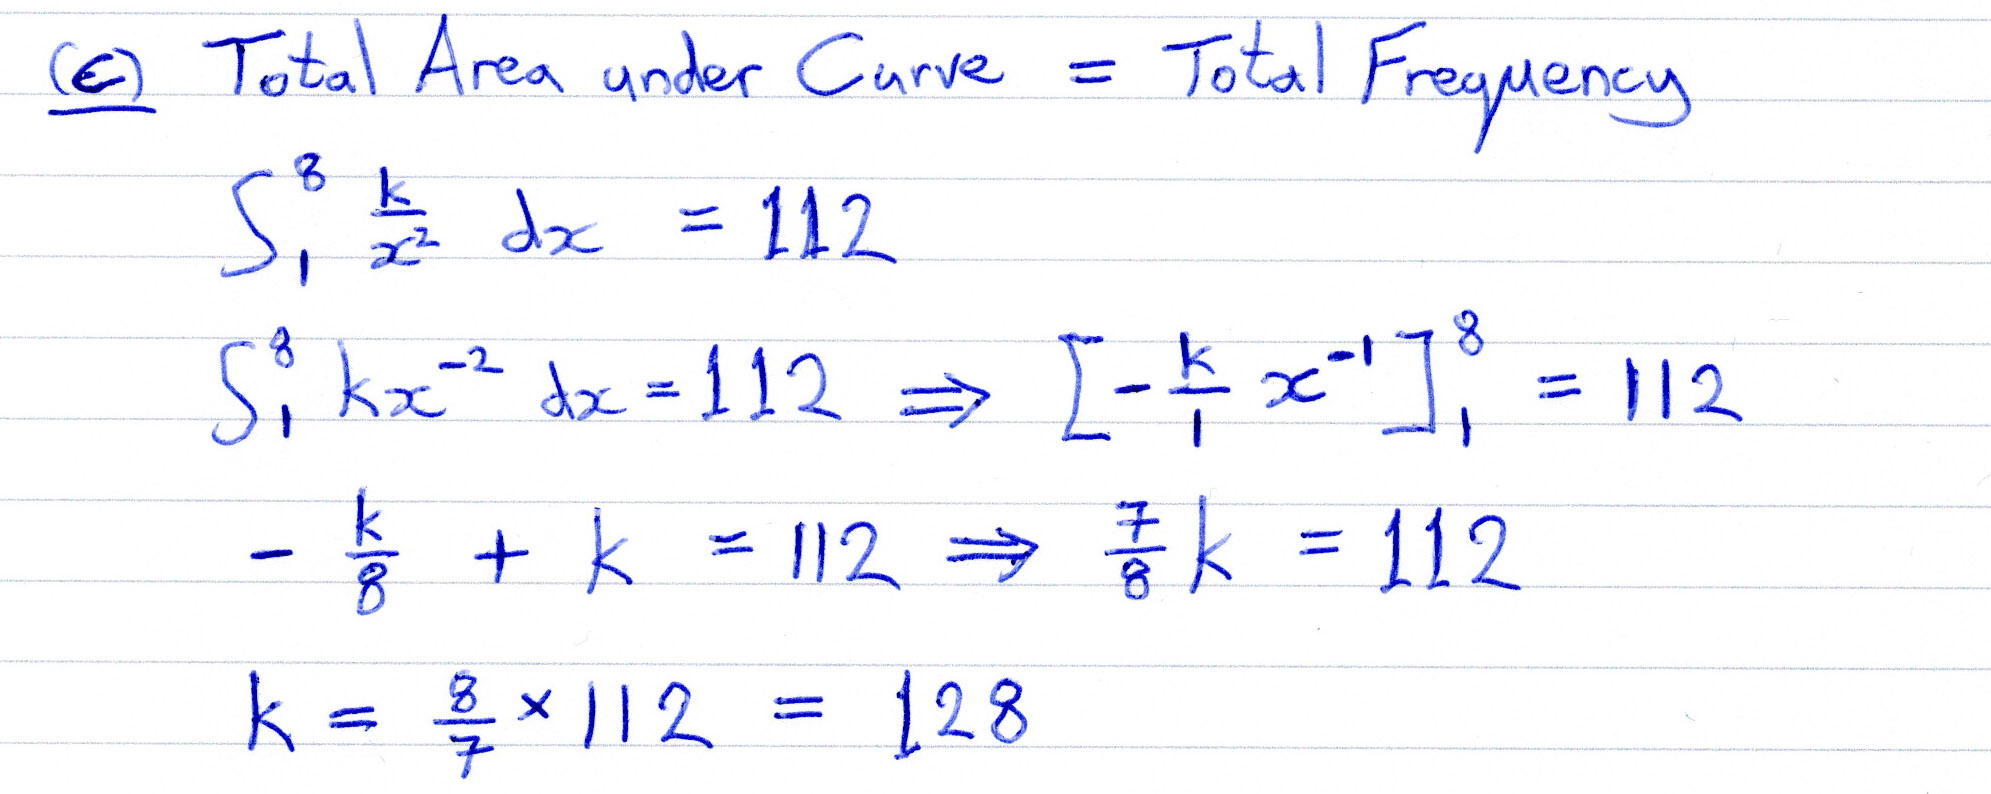 (c) Total Area under Curve = Total Frequency
∫₁⁸ k/x² dx = 112
∫₁⁸ kx⁻² dx = 112 ⇒ [-k/1 x⁻¹]₁⁸ = 112
- k/8 + k = 112 ⇒ 7/8 k = 112
k = 8/7 × 112 = 128